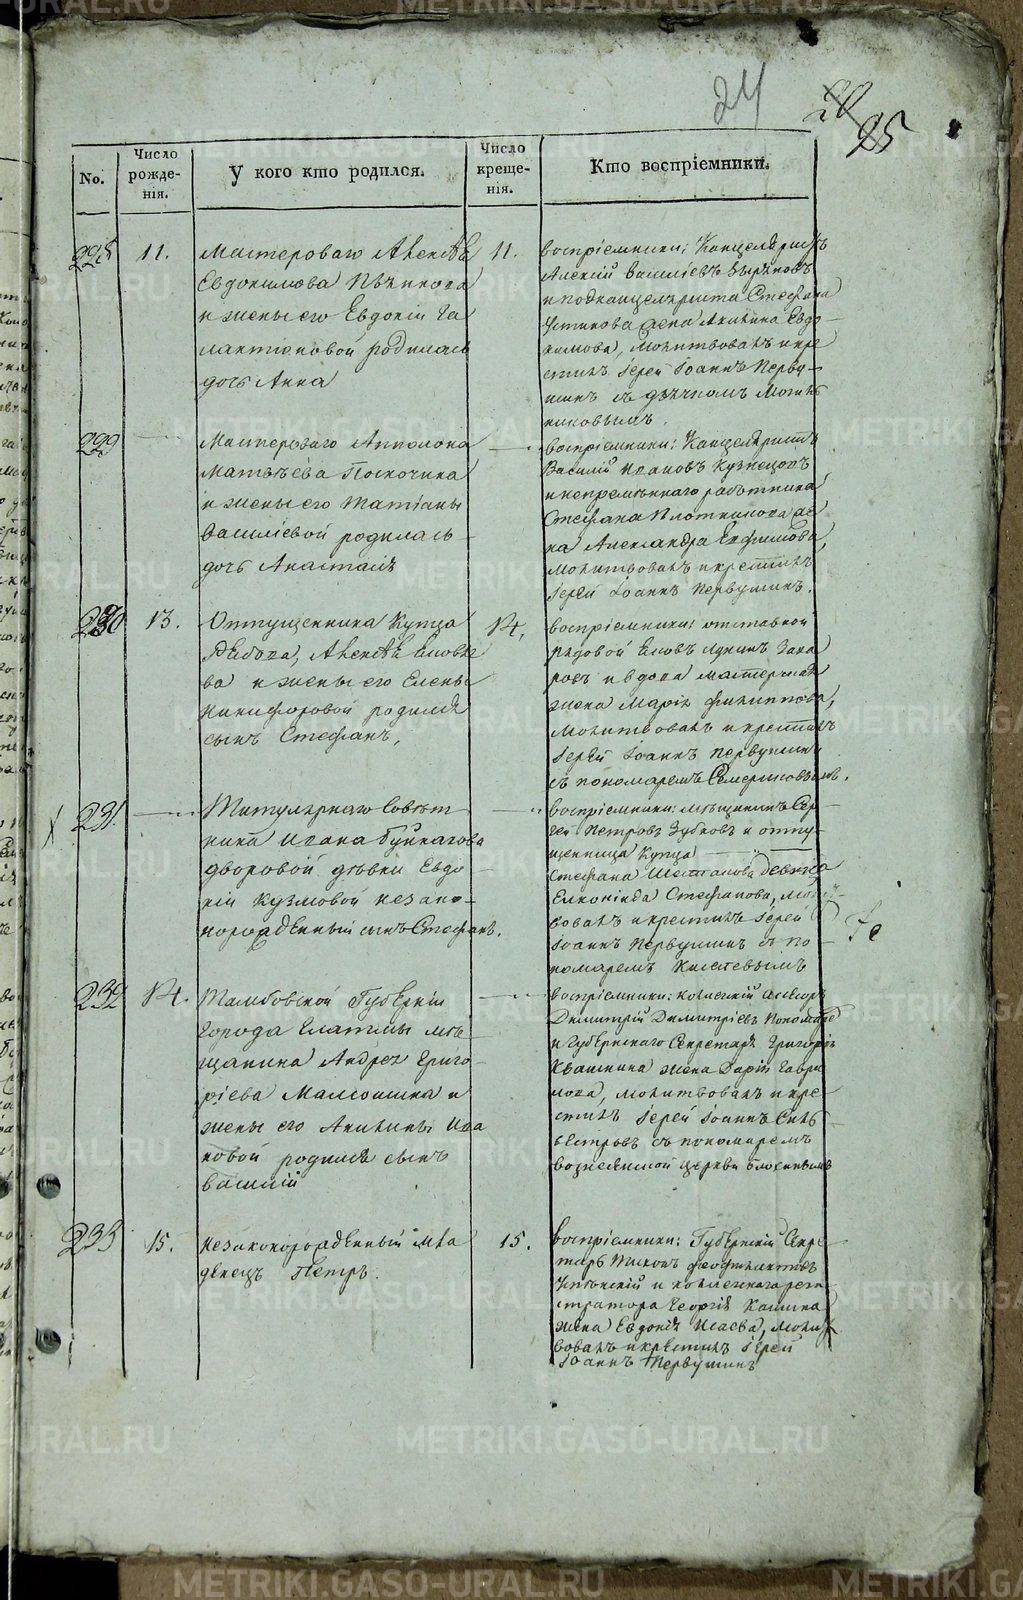 24
20
25
No.
Число рожде-нія.
У кого кто родился.
Число креще-нія.
Кто воспріемники.
228
11.
Мастероваго Алексѣя
Евдокимова
и жены его Евдокіи Га
лактіоновой родилась
дочь Анна
11.
воспріемники: Канцеляристъ
Алексій Василіевъ
и подканцеляриста Стефана
Устинова жена Акилина Евдо-
кимова, молитвовалъ и кре
стилъ Іерей Іоаннъ Перву-
шинъ съ дьячкомъ
229
Мастероваго Апполона
Матвѣева Поскочина
и жены его Татіаны
Василіевой родилась
дочь Анастасія
воспріемники: Канцеляристъ
Василій Ивановъ Кузнецовъ
и непремѣннаго работника
Стефана Плотникова же
на Александра Евфимова,
молитвовалъ и крестилъ
Іерей Іоаннъ Первушинъ.
230
13.
Отпущенника Купца
Рѣбова, Алексѣя Іовле
ва и жены его Елены
Никифоровой родился
сынъ Стефанъ,
14.
воспріемники: отставной
рядовой Іовъ Заха
ровъ и вдова мастерская
жена Марія Филиппова,
молитвовалъ и крестилъ
Іерей Іоаннъ Первушинъ
съ пономаремъ
231.
Титулярнаго Совѣт
ника Ивана
дворовой дѣвки Евдо
кіи Кузмовой незако-
норожденный сынъ Стефанъ.
воспріемники: мѣщанинъ Сер-
гей Петровъ Зубковъ и отпу-
щенница Купца
Стефана девка
Стефанова, молит
вовалъ и крестилъ Іерей
Іоаннъ Первушинъ съ по-
номаремъ
232
14.
Тамбовской Губерніи
города Елатмы мѣ
щанина Андрея Григо-
ріева и
жены его Акилины Ива
новой родился сынъ
Василій
воспріемники: коллежскій асессоръ
Димитрій Димитріевъ
и Губернскаго Секретаря Григорія
Квашнина жена Дарія Гаври
лова, молитвовалъ и кре-
стилъ Іерей Іоаннъ Силь
вестровъ съ пономаремъ
вознесенской церкви
233
15.
незаконорожденный мла
денецъ Петръ.
15.
воспріемники: Губернскій Секре-
тарь Феофилактовъ
и коллежскаго реги
стратора Георгія
жена Евдокія Исаева, молит
вовалъ и крестилъ Іерей
Іоаннъ Первушинъ
METRIKI.GASO-URAL.RU